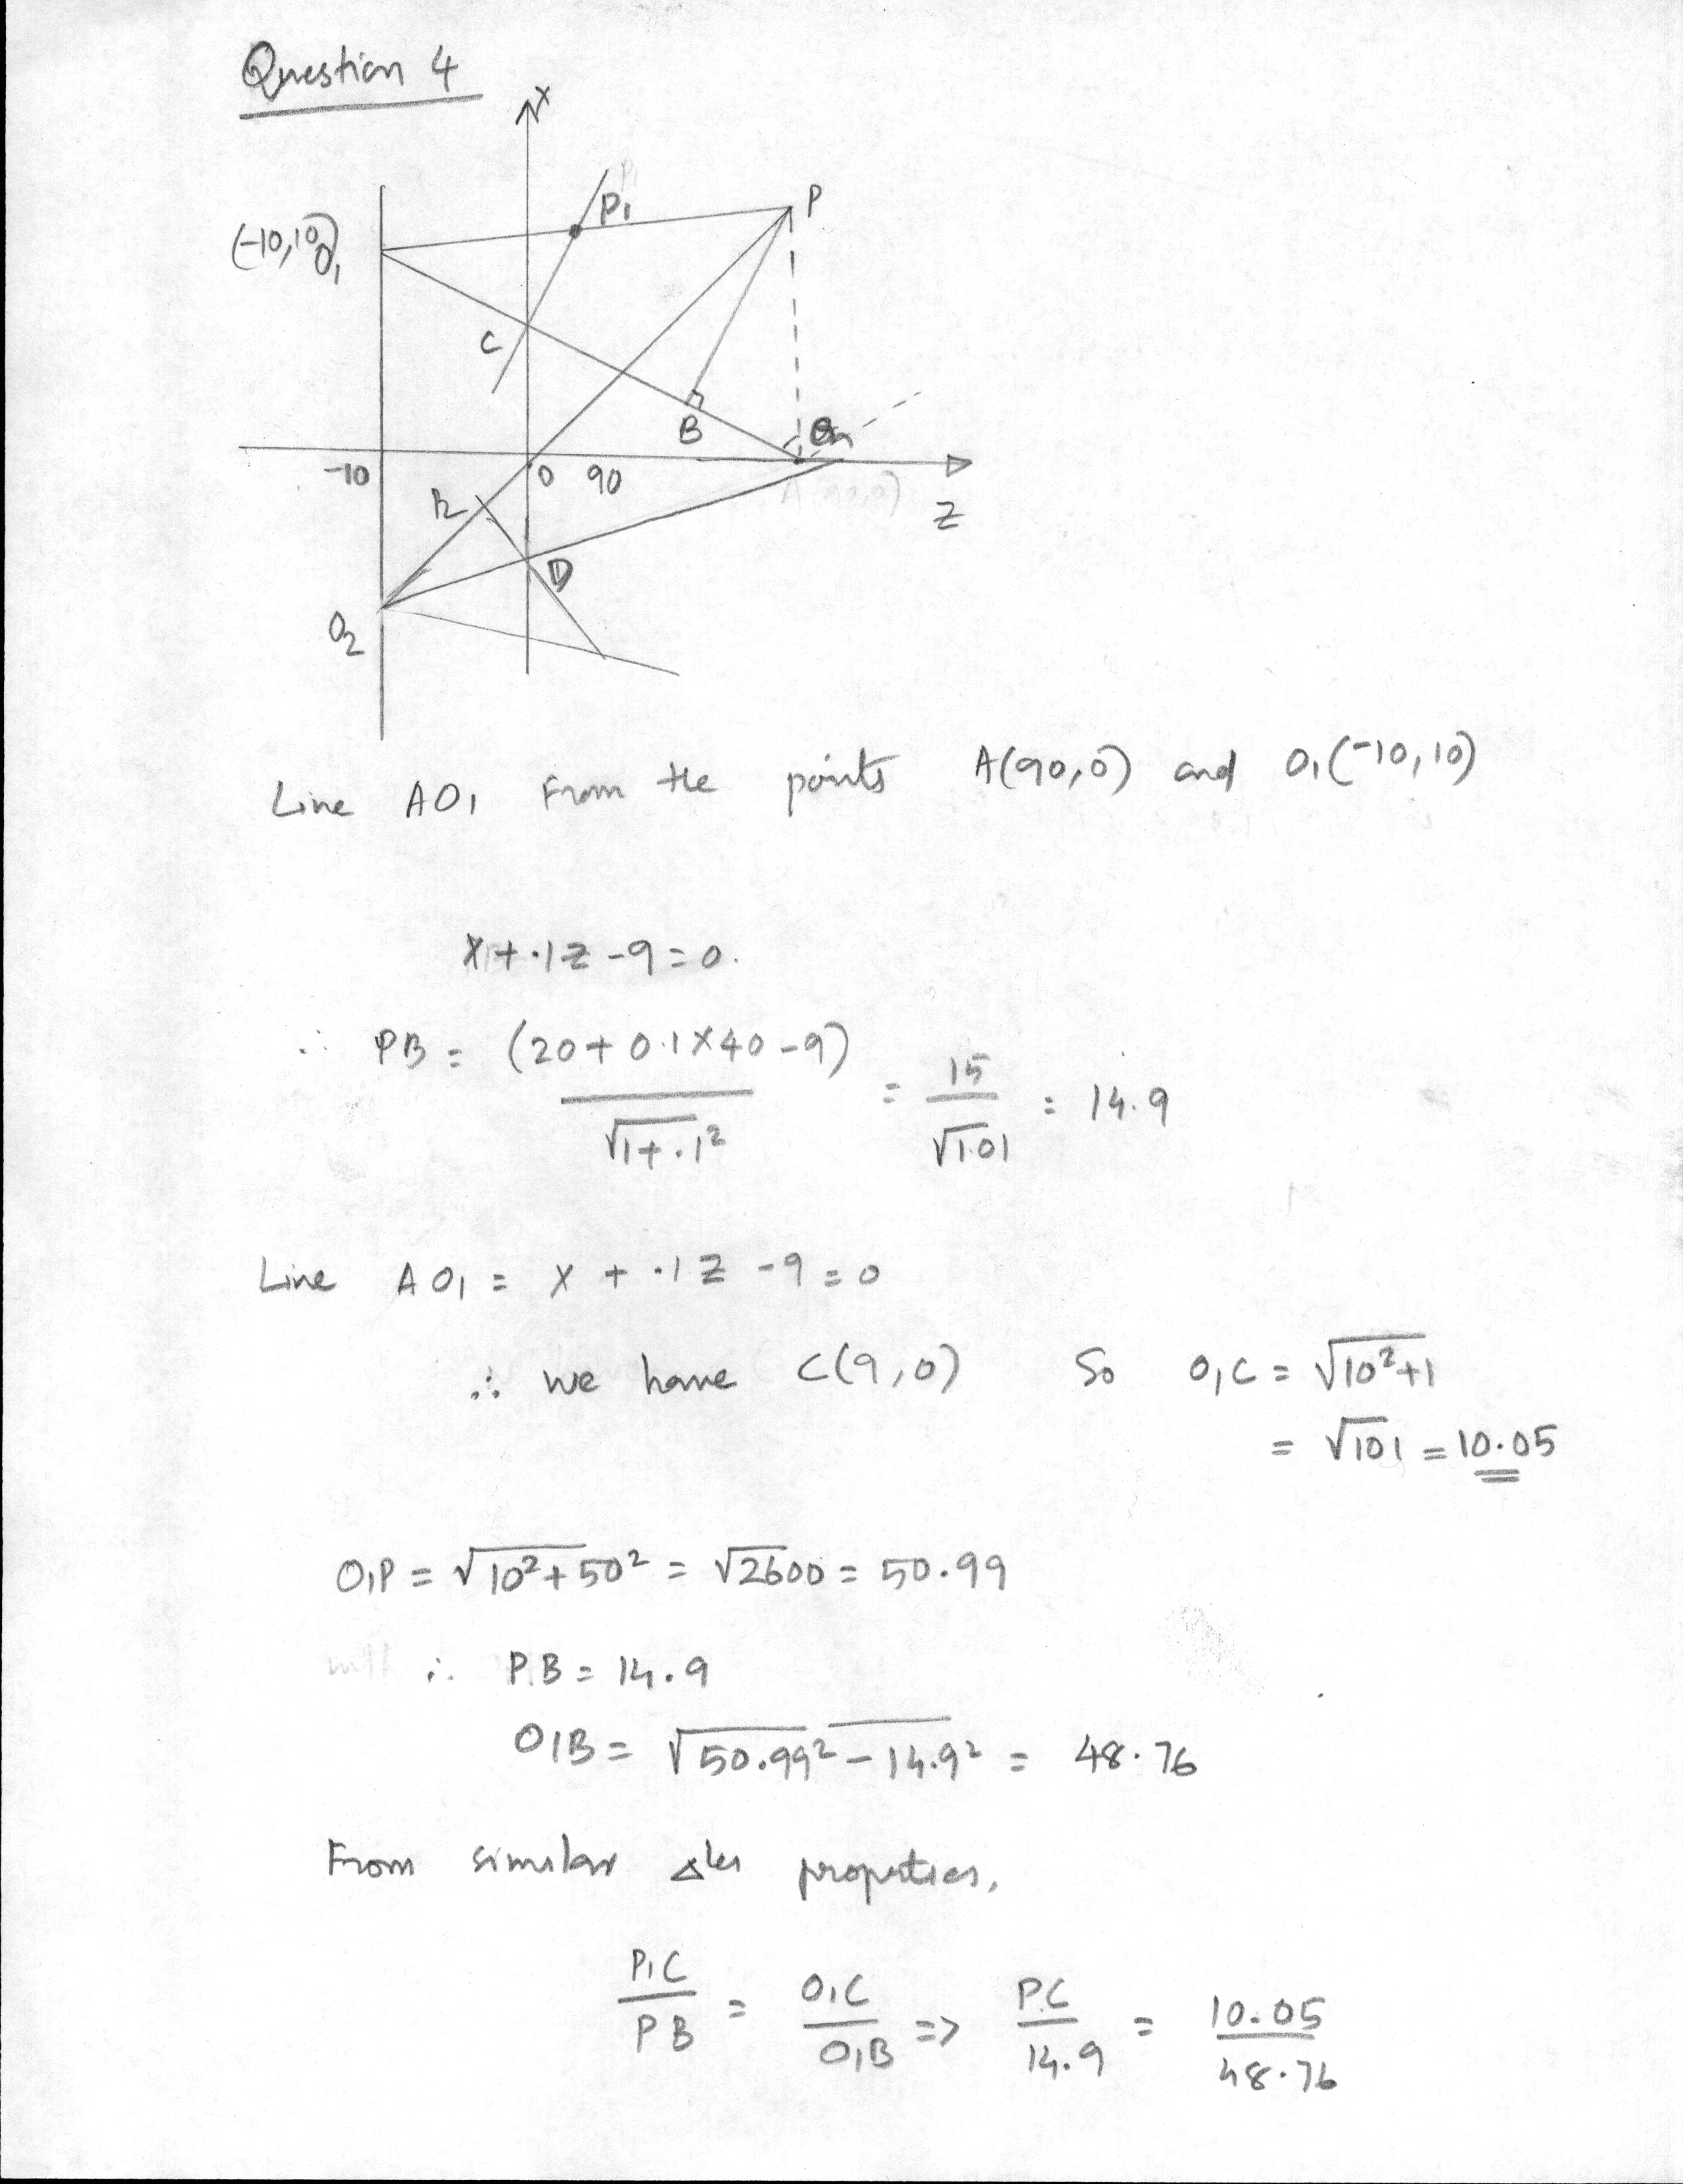 Question 4
X
P1
P
(-10,10)
O1
C
B
-10
0 90
A(90,0)
Z
D
O2
Line AO1 From the points A(90,0) and O1(-10,10)
X+.1Z-9=0.
∴ PB = (20+0.1X40-9) / √1+.1² = 15/√1.01 = 14.9
Line AO1 = X + .1Z -9=0
∴ we have C(9,0) So O1C = √10²+1
= √101 = 10.05
O1P = √10²+50² = √2600 = 50.99
∴ PB = 14.9
O1B = √50.99²-14.9² = 48.76
From similar Δles properties,
P1C/PB = O1C/O1B => P1C/14.9 = 10.05/48.76